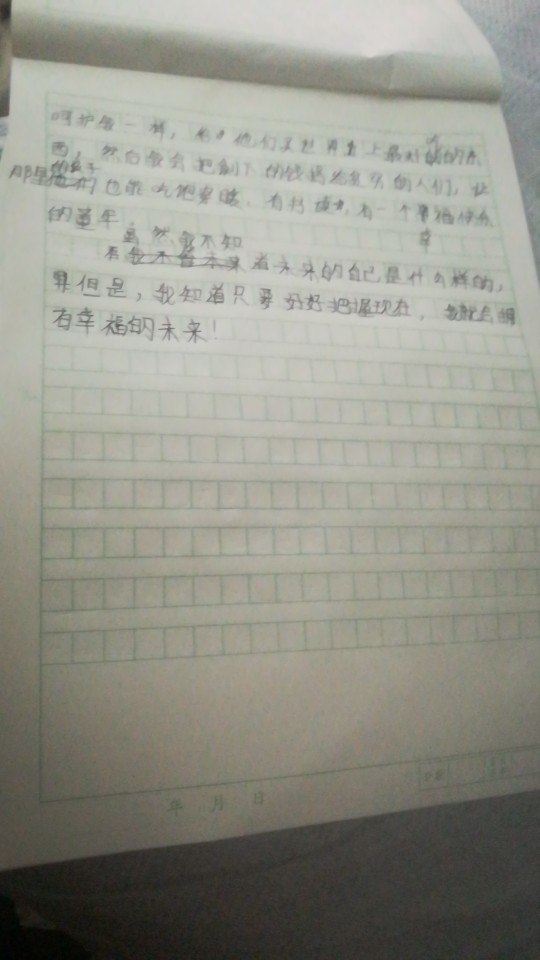 呵护我一样，给他们买世界上最好的东
西，然后我会把剩下的钱捐给的人们，让
那里的孩子也能吃饱穿暖、有书读，有一个幸福快乐
的童年。
虽然我不知
道未来的自己是什么样的，
但是，我知道只要好好把握现在，我就会拥
有幸福的未来！
年 月 日